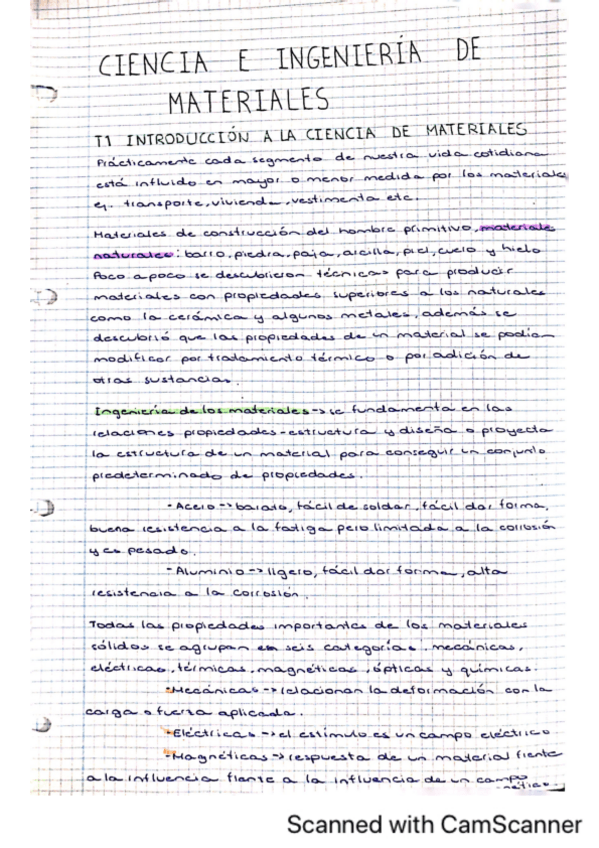 CIENCIA E INGENIERÍA DE
MATERIALES
T1 INTRODUCCIÓN A LA CIENCIA DE MATERIALES
Prácticamente cada segmento de nuestra vida cotidiana
está influido en mayor o menor medida por los materiales
ej. transporte, vivienda, vestimenta etc.
Materiales de construcción del hombre primitivo, materiales
naturales: barro, piedra, paja, arcilla, piel, cuero y hielo
Poco a poco se descubrieron técnicas para producir
materiales con propiedades superiores a los naturales
como la cerámica y algunos metales, además se
descubrió que las propiedades de un material se podían
modificar por tratamiento térmico o por adición de
otras sustancias.
Ingeniería de los materiales -> se fundamenta en las
relaciones propiedades-estructura y diseña o proyecta
la estructura de un material para conseguir un conjunto
predeterminado de propiedades.
- Acero -> barato, fácil de soldar, fácil dar forma,
buena resistencia a la fatiga pero limitada a la corrosión
y es pesado.
- Aluminio -> ligero, fácil dar forma, alta
resistencia a la corrosión.
Todas las propiedades importantes de los materiales
sólidos se agrupan en seis categorías: mecánicas,
eléctricas, térmicas, magnéticas, ópticas y químicas.
- Mecánicas -> relacionan la deformación con la
carga o fuerza aplicada.
- Eléctricas -> el estímulo es un campo eléctrico
- Magnéticas -> respuesta de un material frente
a la influencia frente a la influencia de un campo
Scanned with CamScanner